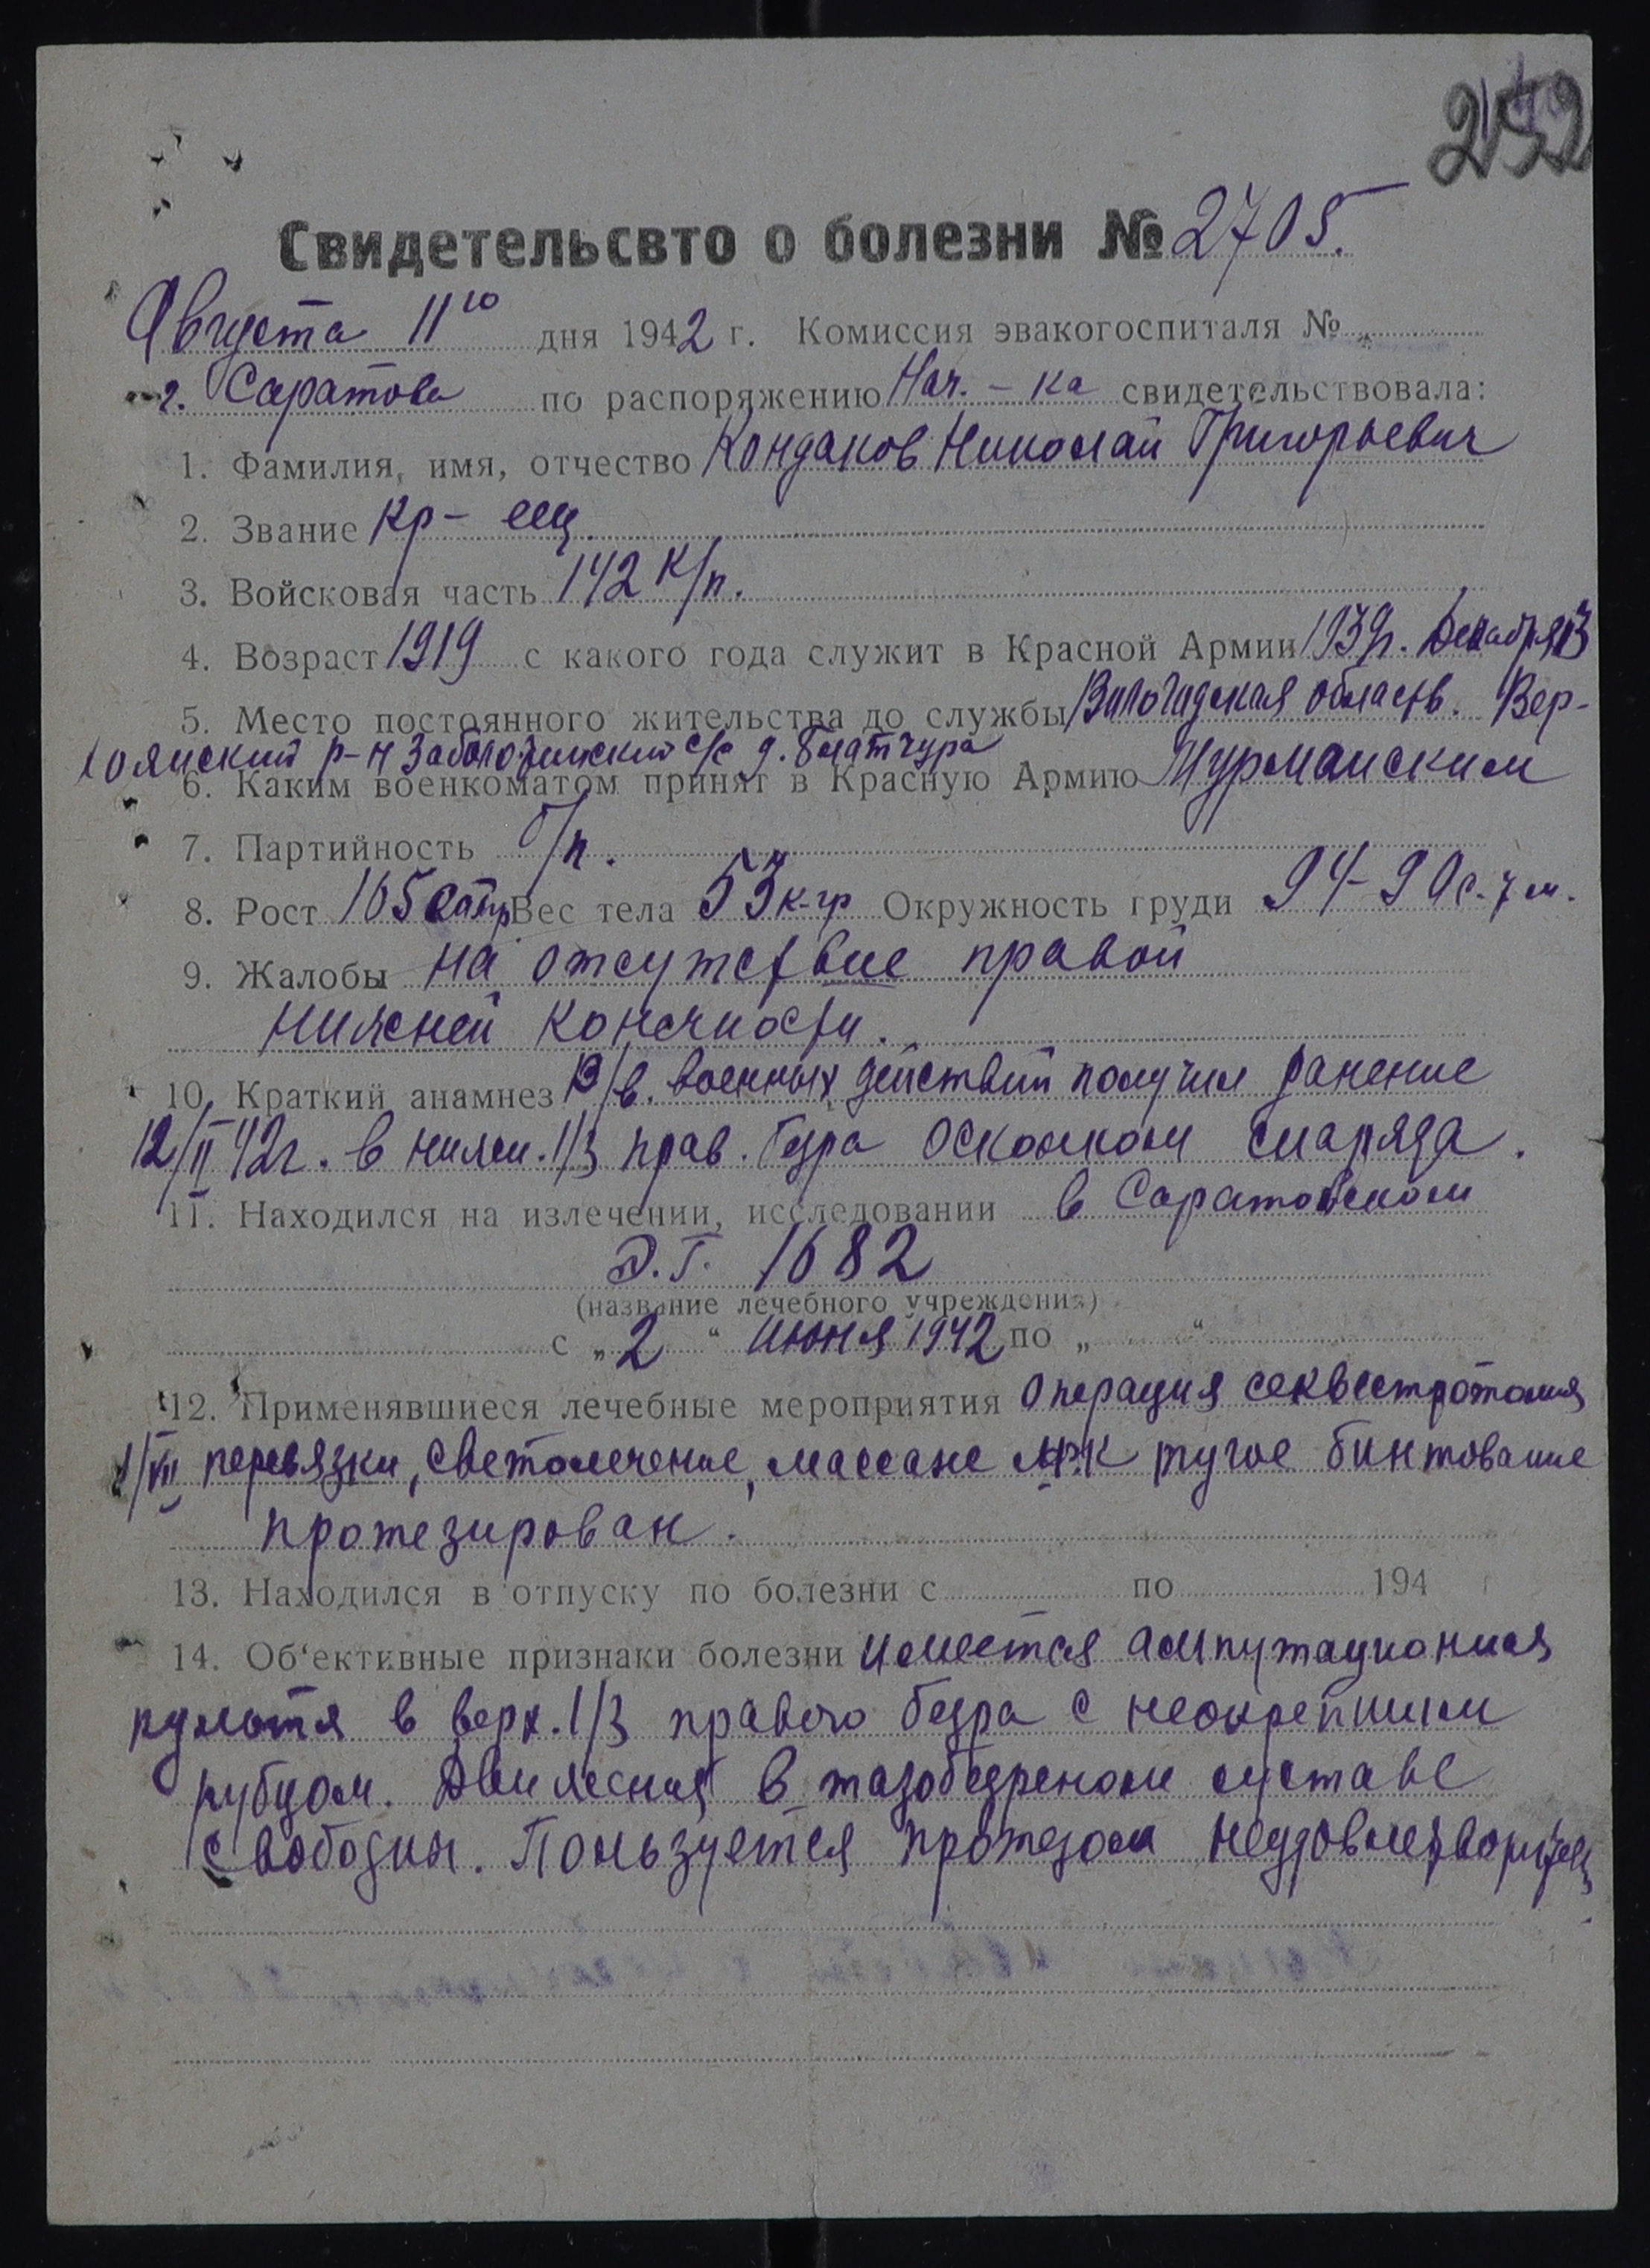 252
Свидетельсвто о болезни № 2705.
Августа 11го дня 1942 г. Комиссия эвакогоспиталя №
г. Саратова по распоряжению Нач.-ка свидетельствовала:
1. Фамилия, имя, отчество Кондаков Николай Григорьевич
2. Звание кр-ец
3. Войсковая часть 142 к/п.
4. Возраст 1919 с какого года служит в Красной Армии 1939г. декабря
5. Место постоянного жительства до службы Вологодская область. Вер-
р-н с/с д.
6. Каким военкоматом принят в Красную Армию Мурманским
7. Партийность б/п.
8. Рост 165 Вес тела 53 к-гр Окружность груди 94-90 с-тм.
9. Жалобы на отсутствие правой
нижней конечности.
10. Краткий анамнез В/в. военных действий получил ранение
12/II 42г. в нижн. 1/3 прав. бедра осколком снаряда.
11. Находился на излечении, исследовании в Саратовском
Э.Г. 1682
(название лечебного учреждения)
с „2“ июня 1942 по „ “
12. Применявшиеся лечебные мероприятия операция секвестротомия
1/VII перевязки, светолечение, массаж ЛФК тугое бинтование
протезирован.
13. Находился в отпуску по болезни с по 194
14. Об‘ективные признаки болезни имеется ампутационная
культя в верх. 1/3 правого бедра с неокрепшим
рубцом. Движения в тазобедреном суставе
свободны. Пользуется протезом